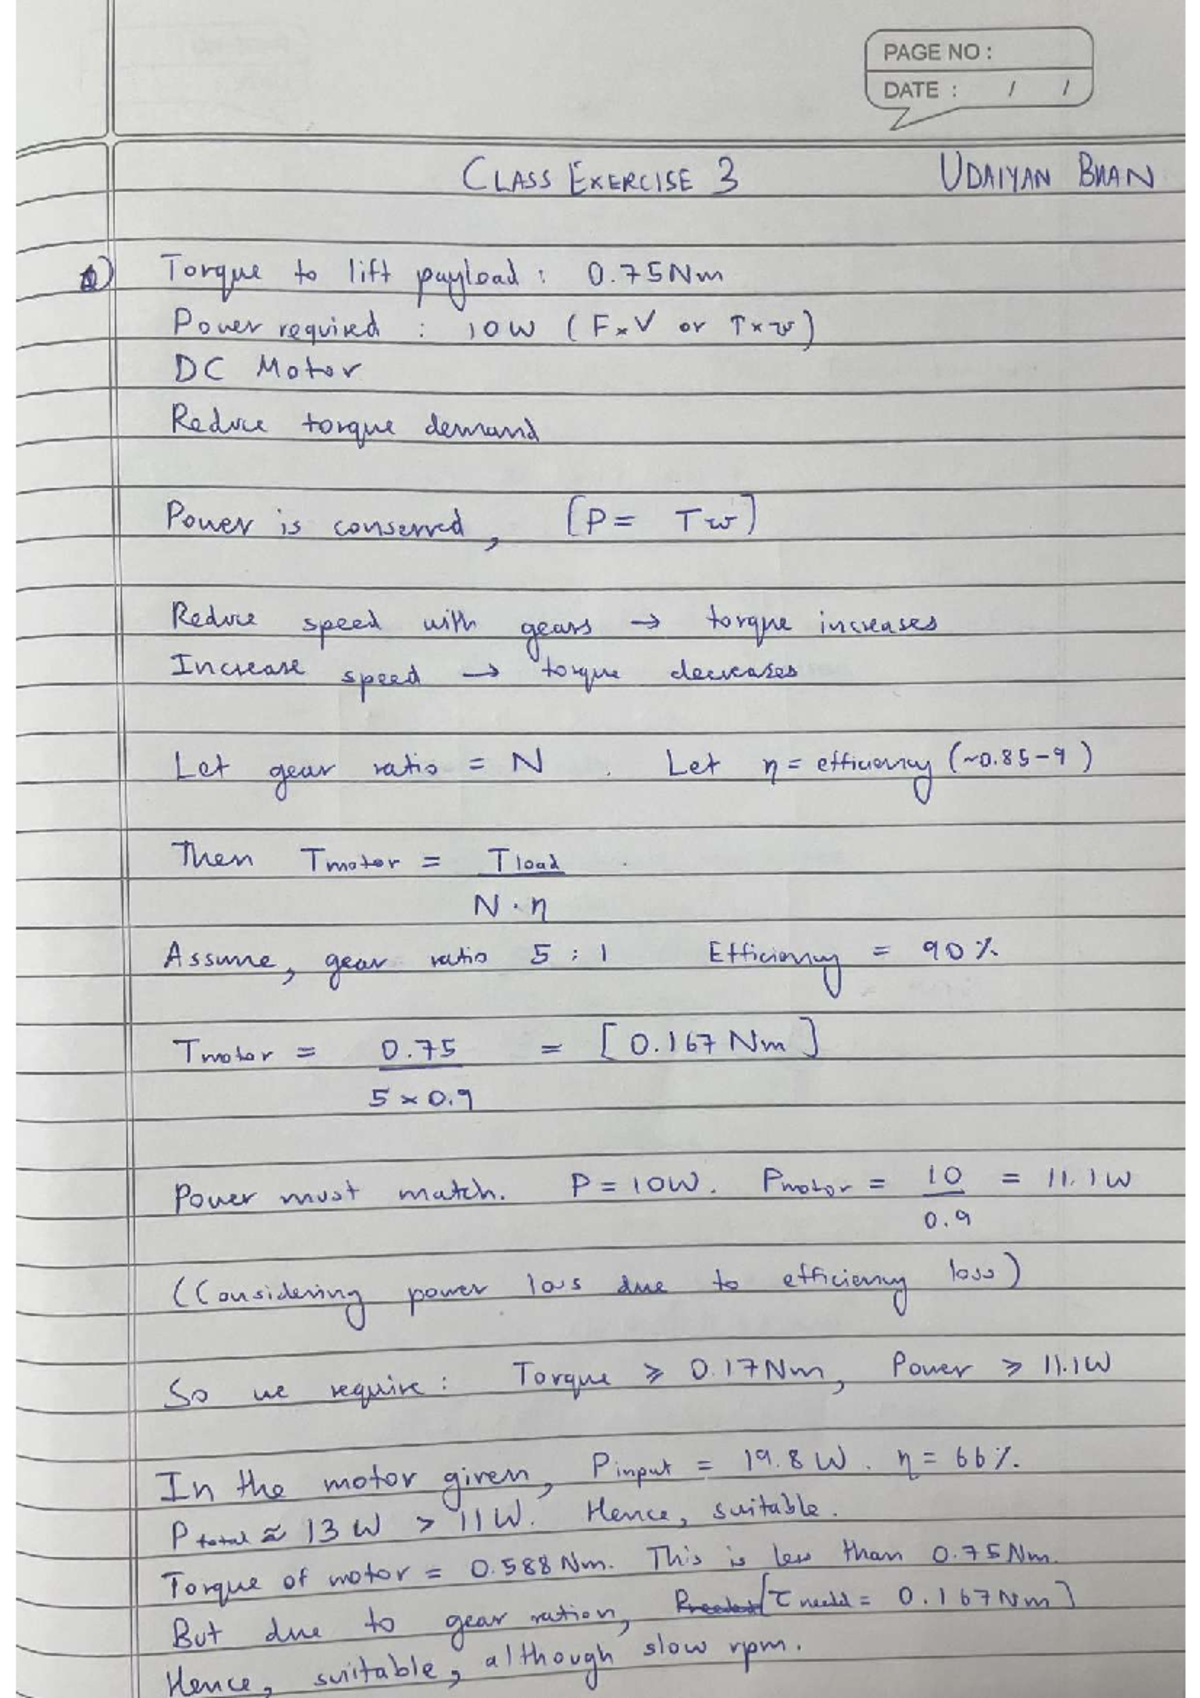 PAGE NO :
DATE : / /
CLASS EXERCISE 3 UDAIYAN BHAN
Q) Torque to lift payload : 0.75Nm
Power required : 10W ( F×V or T×w)
DC Motor
Reduce torque demand
Power is conserved, [P = Tw]
Reduce speed with gears → torque increases
Increase speed → torque decreases
Let gear ratio = N . Let η = efficiency (~0.85-9)
Then Tmotor = Tload
N . η
Assume, gear ratio 5 : 1 Efficiency = 90%
Tmotor = 0.75 = [0.167 Nm]
5 × 0.9
Power must match. P = 10W. Pmotor = 10 = 11.1W
0.9
(Considering power loss due to efficiency loss)
So we require : Torque ≥ 0.17Nm, Power ≥ 11.1W
In the motor given, Pinput = 19.8W. η = 66%.
Ptotal ≈ 13W > 11W. Hence, suitable.
Torque of motor = 0.588Nm. This is less than 0.75Nm.
But due to gear ration, [τ needed = 0.167Nm]
Hence, suitable, although slow rpm.